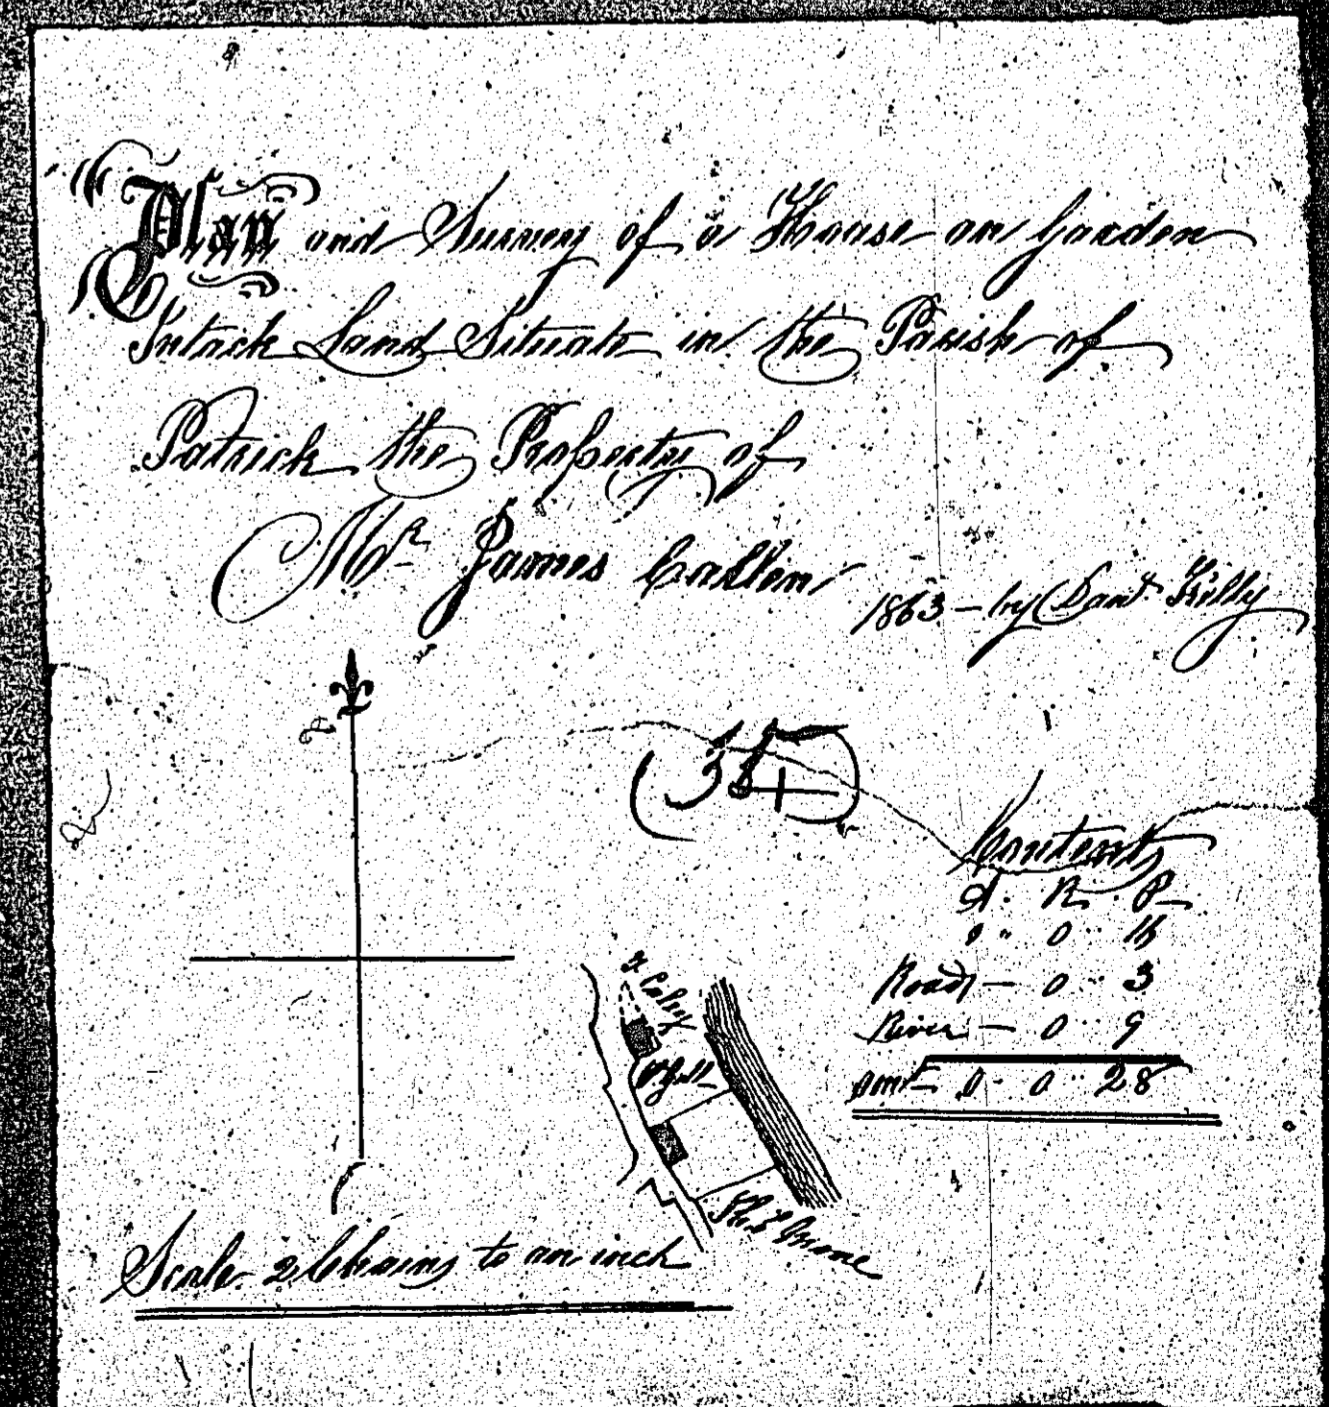 Plan and Survey of a House on Garden
Intack Land Situate in the Parish of
Patrick the Property of
Mr James
1863 - by Danl Kelly
Contents
A. R. P.
0 " 0 " 16
Road - 0 " 3
River - 0 " 9
Amt 0 " 0 " 28
Caley
Scale 2 Chains to an inch